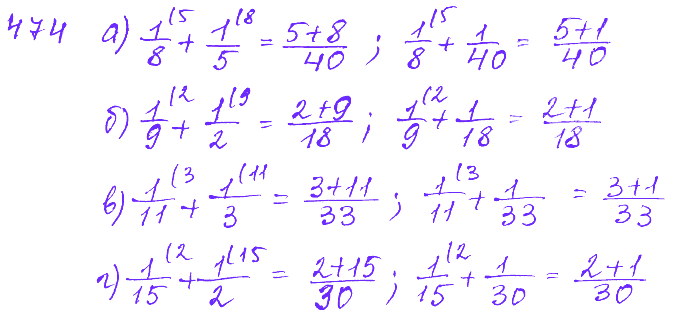 474 а) 1/8⁽⁵ + 1/5⁽⁸ = (5+8)/40 ; 1/8⁽⁵ + 1/40 = (5+1)/40
б) 1/9⁽² + 1/2⁽⁹ = (2+9)/18 ; 1/9⁽² + 1/18 = (2+1)/18
в) 1/11⁽³ + 1/3⁽¹¹ = (3+11)/33 ; 1/11⁽³ + 1/33 = (3+1)/33
г) 1/15⁽² + 1/2⁽¹⁵ = (2+15)/30 ; 1/15⁽² + 1/30 = (2+1)/30